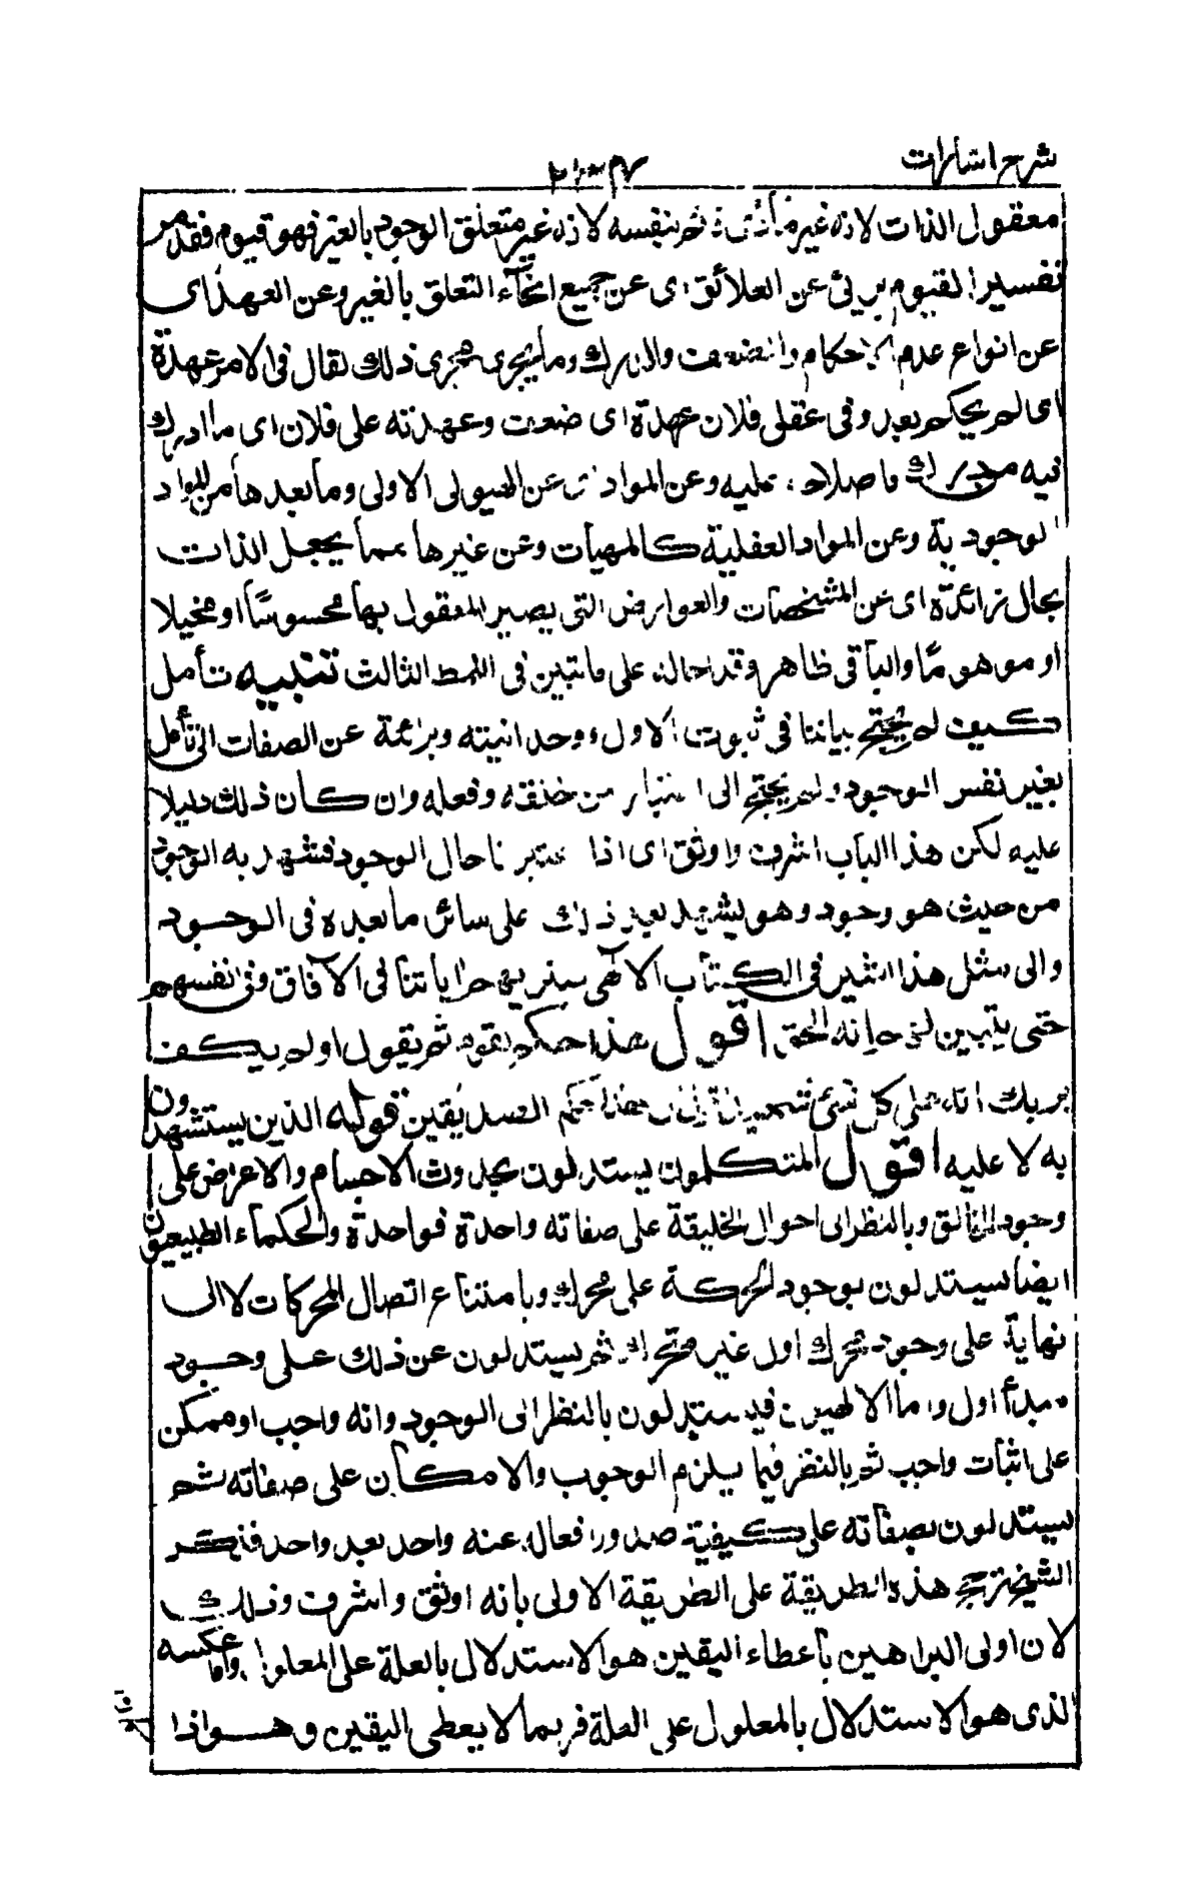 شرح اشارات
معقول الذات لانه غير قائم بنفسه لانه غير متعلق الوجود بالغير فهو قيوم فقد مر
تفسير القيوم برئ عن العلائق اى عن جميع انحآء التعلق بالغير وعن العهد اى
عن انواع عدم الاحكام والضعف والدرك وما يجرى مجرى ذلك يقال فى الامر عهدة
اى لم يحكم بعد وفى عقل فلان عهدة اى ضعف وعهدته على فلان اى ما ادرك
فيه من درك فاصلاحه عليه وعن المواد اى عن الهيولى الاولى وما بعدها من المواد
الوجودية وعن المواد العقلية كالمهيات وعن غيرها مما يجعل الذات
بحال زائدة اى عن المشخصات والعوارض التى يصير المعقول بها محسوسًا او مخيلا
او موهومًا والباقى ظاهر وقد احاله على ما تبين فى النمط الثالث تنبيه تأمل
كيف لم يحتج بياننا فى ثبوت الاول ووحدانيته وبرائة عن الصفات الى تأمل
بغير نفس الوجود ولم يحتج الى اعتبار من خلقه وفعله وان كان ذلك دليلا
عليه لكن هذا الباب اشرف واوثق اى اذا اعتبرنا حال الوجود فشهد به الوجود
من حيث هو وجود وهو يشهد بعد ذلك على سائر ما بعده فى الوجود
والى مثل هذا اشير فى الكتاب الآلهى سنريهم اياتنا فى الآفاق وفى انفسهم
حتى يتبين لهم انه الحق اقول هذا حكم لقوم ثم يقول اولم يكف
بربك انه على كل شئ شهيد اقول ان هذا حكم الصديقين قوله الذين يستشهدون
به لا عليه اقول المتكلمون يستدلون بحدوث الاجسام والاعراض على
وجود الخالق وبالنظر الى احوال الخليقة على صفاته واحدة فواحدة والحكماء الطبيعيون
ايضا يستدلون بوجود الحركة على محرك وبامتناع اتصال المحركات لا الى
نهاية على وجود محرك اول غير متحرك ثم يستدلون عن ذلك على وجود
مبدأ اول واما الالهيون فيستدلون بالنظر الى الوجود وانه واجب او ممكن
على اثبات واجب ثم بالنظر فيما يلزم الوجوب والامكان على صفاته ثم
يستدلون بصفاته على كيفية صدور افعاله عنه واحد بعد واحد فذكر
الشيخ ترجيح هذه الطريقة على الطريقة الاولى بانه اوثق واشرف وذلك
لان اولى البراهين باعطاء اليقين هو الاستدلال بالعلة على المعلول واما عكسه
الذى هو الاستدلال بالمعلول على العلة فربما لا يعطى اليقين وهو اذا